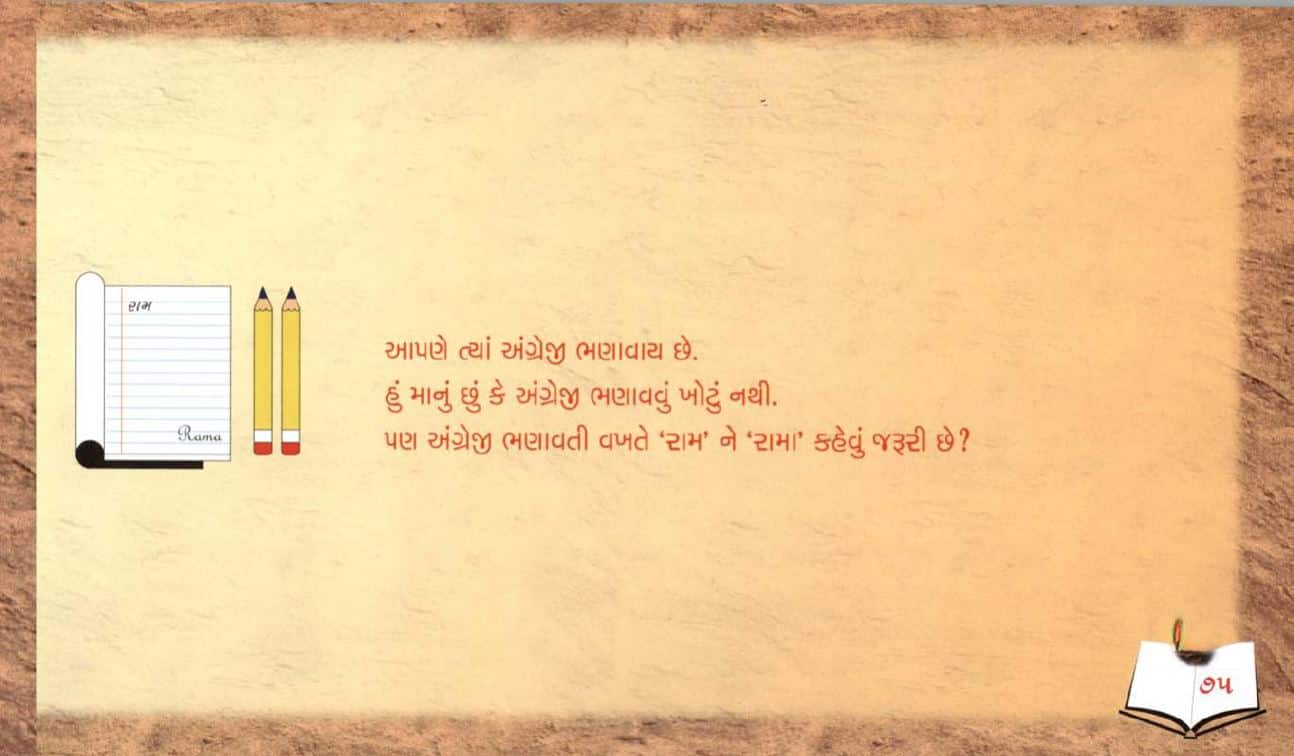 રામ
Rama
આપણે ત્યાં અંગ્રેજી ભણાવાય છે.
હું માનું છું કે અંગ્રેજી ભણાવવું ખોટું નથી.
પણ અંગ્રેજી ભણાવતી વખતે ‘રામ’ ને ‘રામા’ કહેવું જરૂરી છે?
૭૫